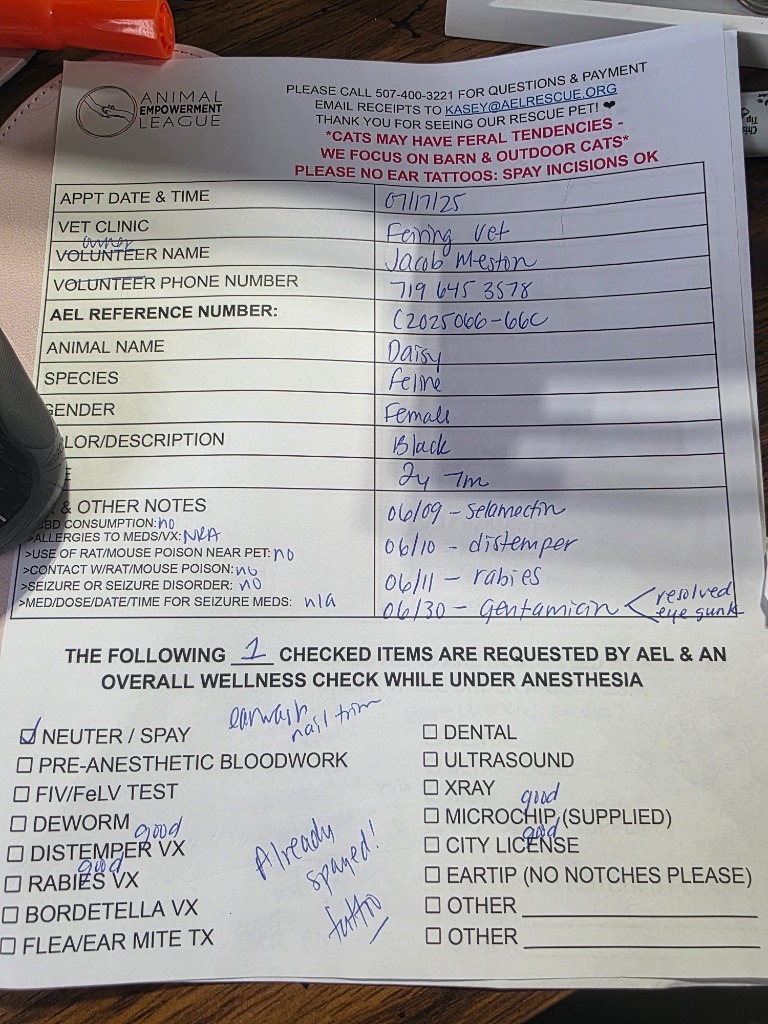 ANIMAL
EMPOWERMENT
LEAGUE
PLEASE CALL 507-400-3221 FOR QUESTIONS & PAYMENT
EMAIL RECEIPTS TO KASEY@AELRESCUE.ORG
THANK YOU FOR SEEING OUR RESCUE PET! ❤
*CATS MAY HAVE FERAL TENDENCIES -
WE FOCUS ON BARN & OUTDOOR CATS*
PLEASE NO EAR TATTOOS: SPAY INCISIONS OK
APPT DATE & TIME 07/17/25
VET CLINIC Feiring Vet
owner
VOLUNTEER NAME Jacob Meston
VOLUNTEER PHONE NUMBER 719 645 3578
AEL REFERENCE NUMBER: C2025066-66C
ANIMAL NAME Daisy
SPECIES Feline
GENDER Female
LOR/DESCRIPTION Black
E 2y 7m
& OTHER NOTES 06/09 - selamectin
CBD CONSUMPTION: no
>ALLERGIES TO MEDS/VX: NKA 06/10 - distemper
>USE OF RAT/MOUSE POISON NEAR PET: no
>CONTACT W/RAT/MOUSE POISON: no 06/11 - rabies
>SEIZURE OR SEIZURE DISORDER: no
>MED/DOSE/DATE/TIME FOR SEIZURE MEDS: n/a 06/30 - gentamicin < resolved
eye gunk
THE FOLLOWING 1 CHECKED ITEMS ARE REQUESTED BY AEL & AN
OVERALL WELLNESS CHECK WHILE UNDER ANESTHESIA
☑ NEUTER / SPAY
earwash
nail trim
☐ PRE-ANESTHETIC BLOODWORK
☐ FIV/FeLV TEST
☐ DEWORM
good
☐ DISTEMPER VX
good
☐ RABIES VX
☐ BORDETELLA VX
☐ FLEA/EAR MITE TX
Already
spayed!
tattoo
☐ DENTAL
☐ ULTRASOUND
☐ XRAY
good
☐ MICROCHIP (SUPPLIED)
good
☐ CITY LICENSE
☐ EARTIP (NO NOTCHES PLEASE)
☐ OTHER
☐ OTHER